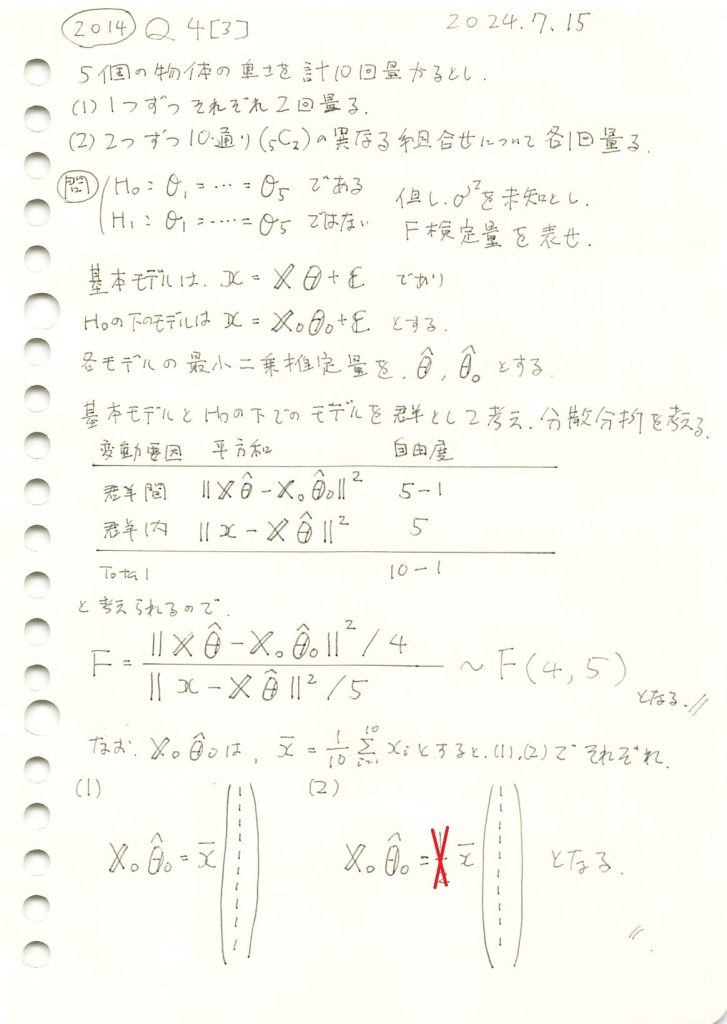 2014 Q4[3] 2024.7.15
5個の物体の重さを計10回量かるとし.
(1) 1つずつそれぞれ2回量る.
(2) 2つずつ10通り(₅C₂)の異なる組合せについて各1回量る.
問 H₀: θ₁=…=θ₅ である 但し、σ²を未知とし.
H₁: θ₁=……=θ₅ ではない F検定量を表せ.
基本モデルは、x = Xθ+ε であり
H₀の下のモデルは x = X₀θ₀+ε とする.
各モデルの最小二乗推定量を、θ̂, θ̂₀ とする.
基本モデルとH₀の下でのモデルを群として考え、分散分析を考える.
変動要因 平方和 自由度
群間 ||Xθ̂-X₀θ̂₀||² 5-1
群内 ||x-Xθ̂||² 5
Total 10-1
と考えられるので.
F = ||Xθ̂-X₀θ̂₀||²/4 / ||x-Xθ̂||²/5 ~ F(4,5) となる.//
なお、X₀θ̂₀は、x̄ = 1/10 Σ_{i=1}^{10} xᵢとすると、(1),(2)でそれぞれ.
(1) (2)
X₀θ̂₀ = x̄ (1 1 1 1 1 1 1 1 1 1) X₀θ̂₀ = x̄ (1 1 1 1 1 1 1 1 1 1) となる.
//.